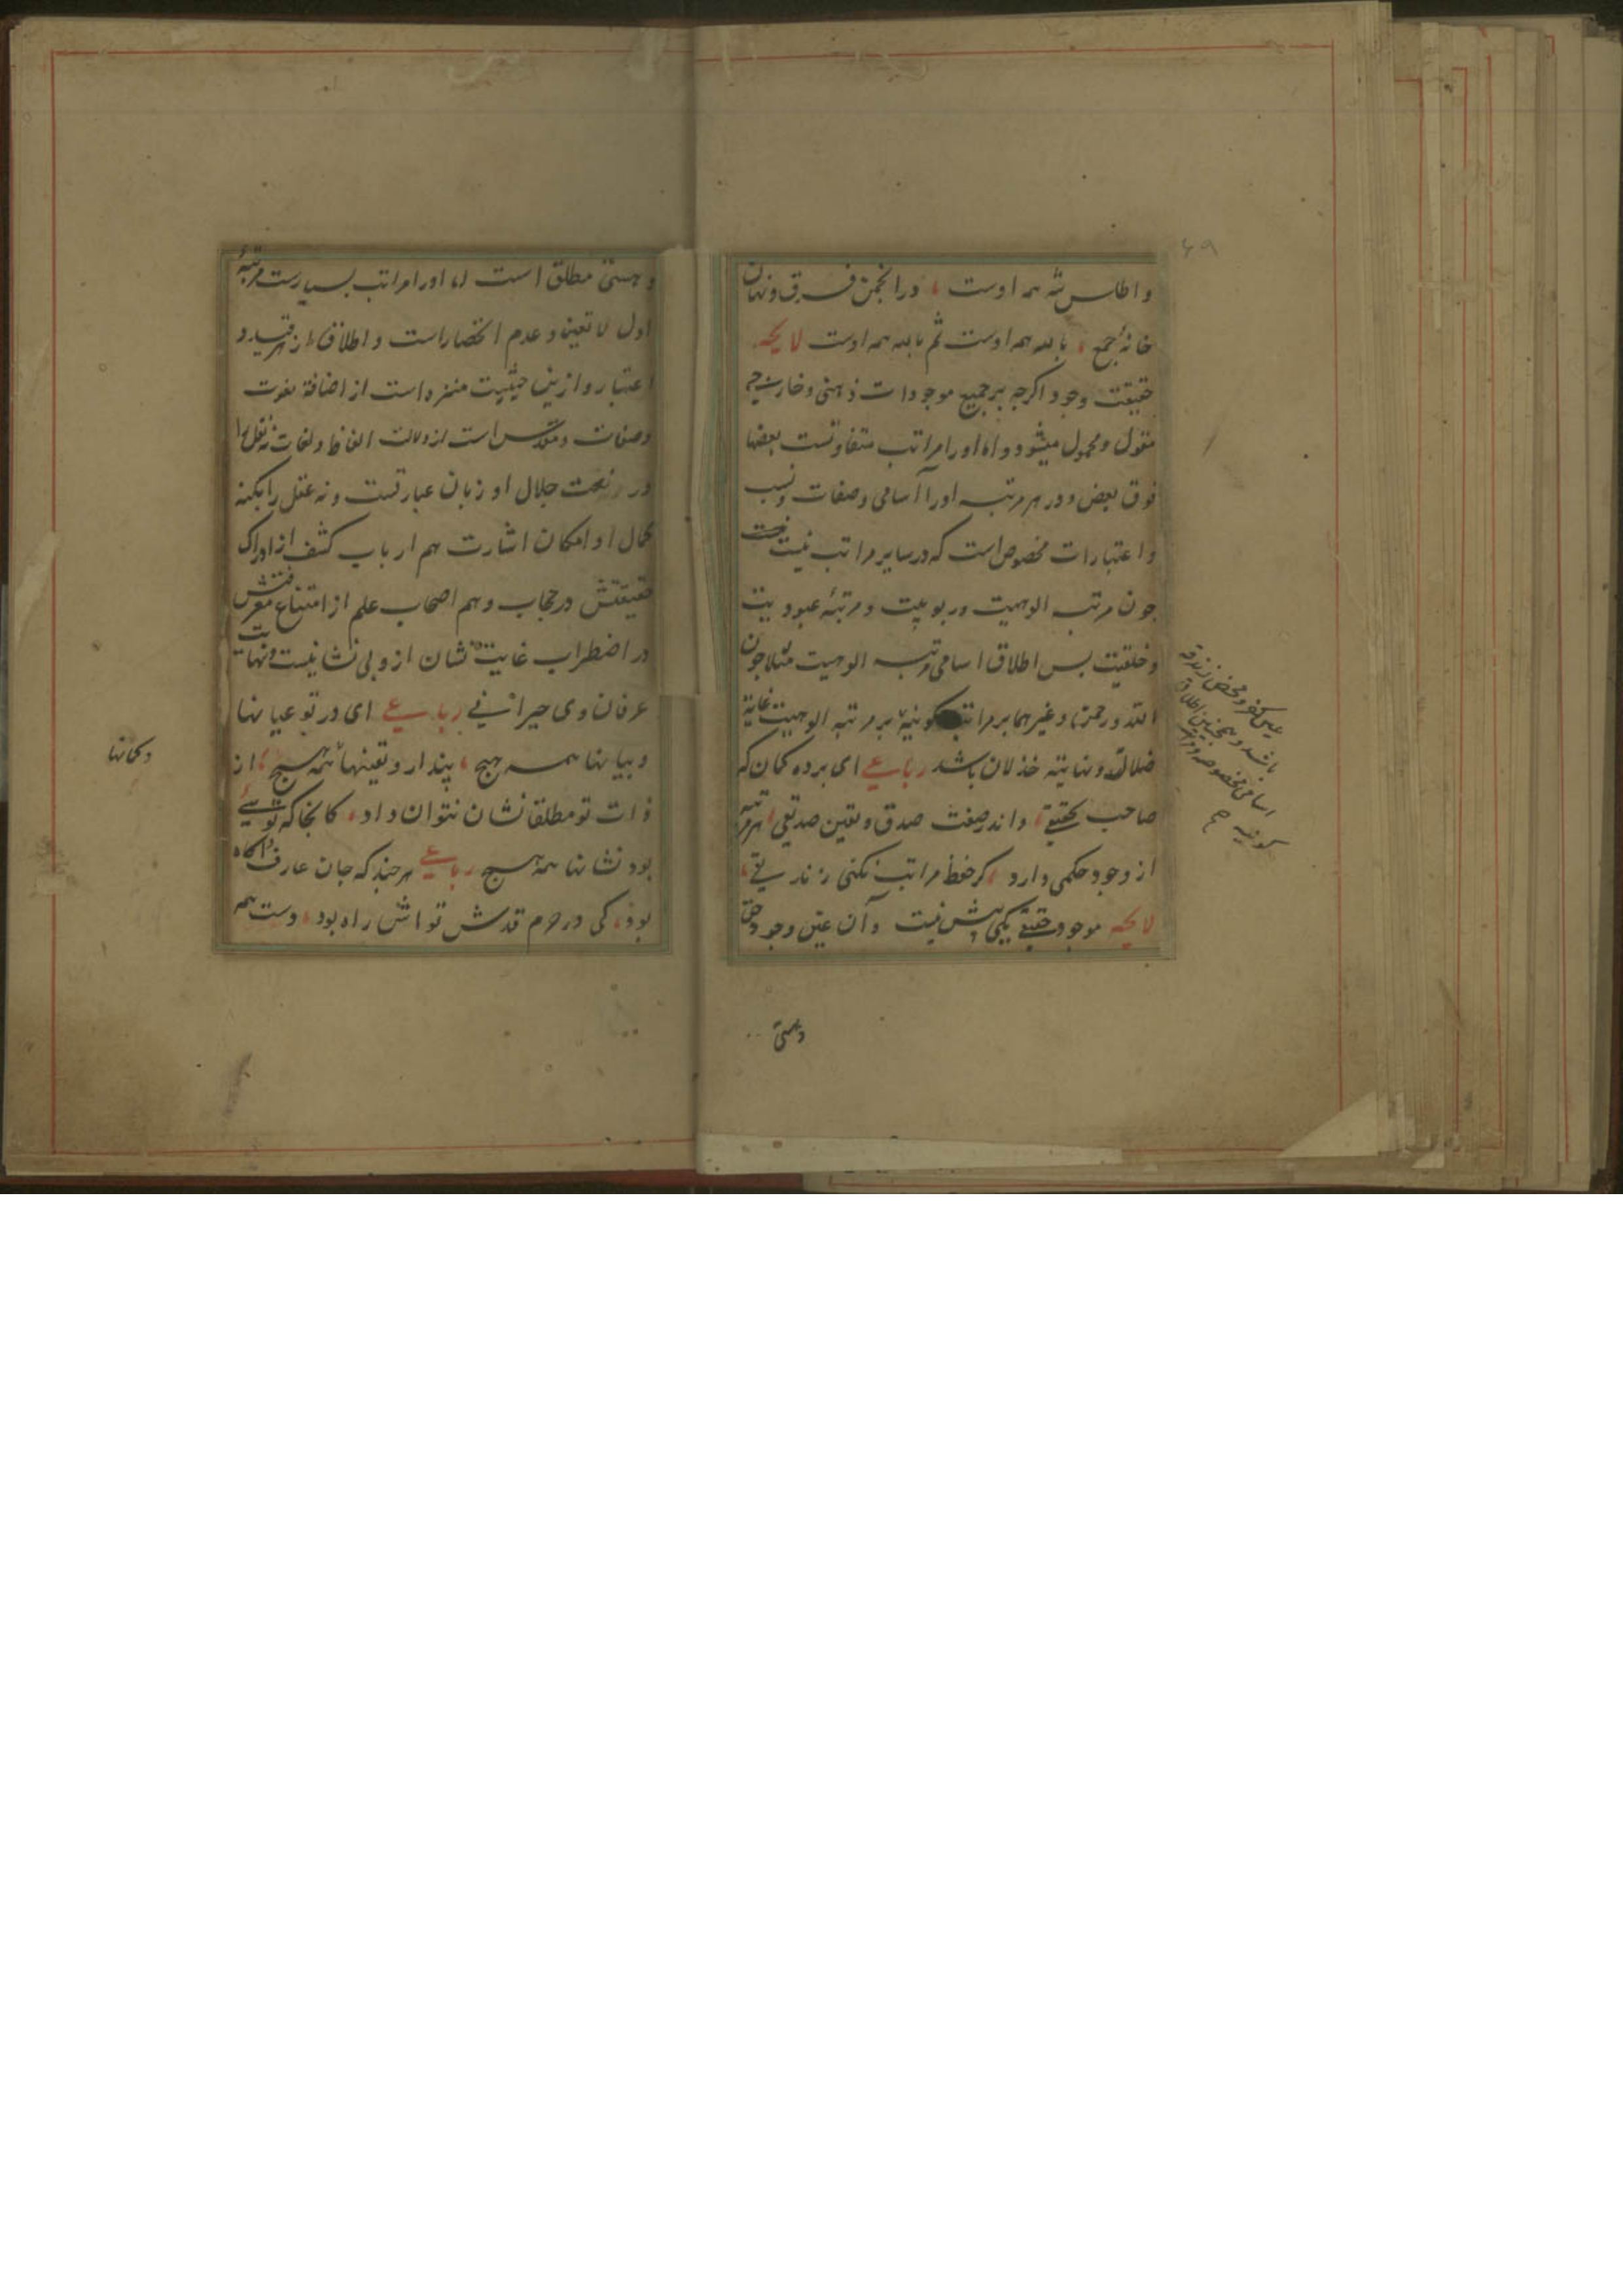 ۶۹
و اطلس شه همه اوست ، در انجمن فرق و نهان
خانهٔ جمع ، بالله همه اوست ثم بالله همه اوست لایحه
حقیقت وجود اکرچه بر جمیع موجودات ذهنی و خارجی
مقول و محمول میشود و اما او را مراتب متفاوتست بعضها
فوق بعض و در هر مرتبه او را آسامی و صفات و نسب
و اعتبارات مخصوص است که در سایر مراتب نیست
چون مرتبه الوهیت و ربوبیت و مرتبهٔ عبودیت
و خلقیت بس اطلاق اسامی مرتبه الوهیت مثلا چون
الله و رحمن و غیرهما بر مراتب کونیه بر مرتبه الوهیت غایة
ضلال و نهایته خذلان باشد رباعی ای برده کمان که
صاحب تحقیقی ، و اندر صفت صدق و یقین صدیقی ، هر مرتبه
از وجود حکمی دارد ، کر حفظ مراتب نکنی زندیقی ،
لایحه موجود حقیقی یکی بیش نیست و آن عین وجود حق
عین کفر و محض زندقه
باشد و همچنین اطلاق
اسامی مخصوصه
کونیه صح
و هستی
و هستی مطلق است اما او را مراتب بسیارست مرتبهٔ
اول لا تعین و عدم انحصار است و اطلاق از هر قید و
اعتبار و ازین حیثیت منزه است از اضافة نعوت
و صفات و مقدس است از دلالت الفاظ و لغات نه نقل را
در نعت جلال او زبان عبارتست و نه عقل را بکنه
کمال او امکان اشارت هم ارباب کشف از ادراک
حقیقتش در حجاب و هم اصحاب علم از امتناع معرفتش
در اضطراب غایت نشان از و بی نشانیست و نهایت
عرفان وی حیرانی رباعی ای در تو عیانها
و بیانها همه هیچ ، پندار و یقینها همه هیچ ، از
ذات تو مطلقا نشان نتوان داد ، کانجا که تویی
بود نشانها همه هیچ رباعی هر چند که جان عارف آکاه
بود ، کی در حرم قدش تواش راه بود ، دست همه
و کمانها